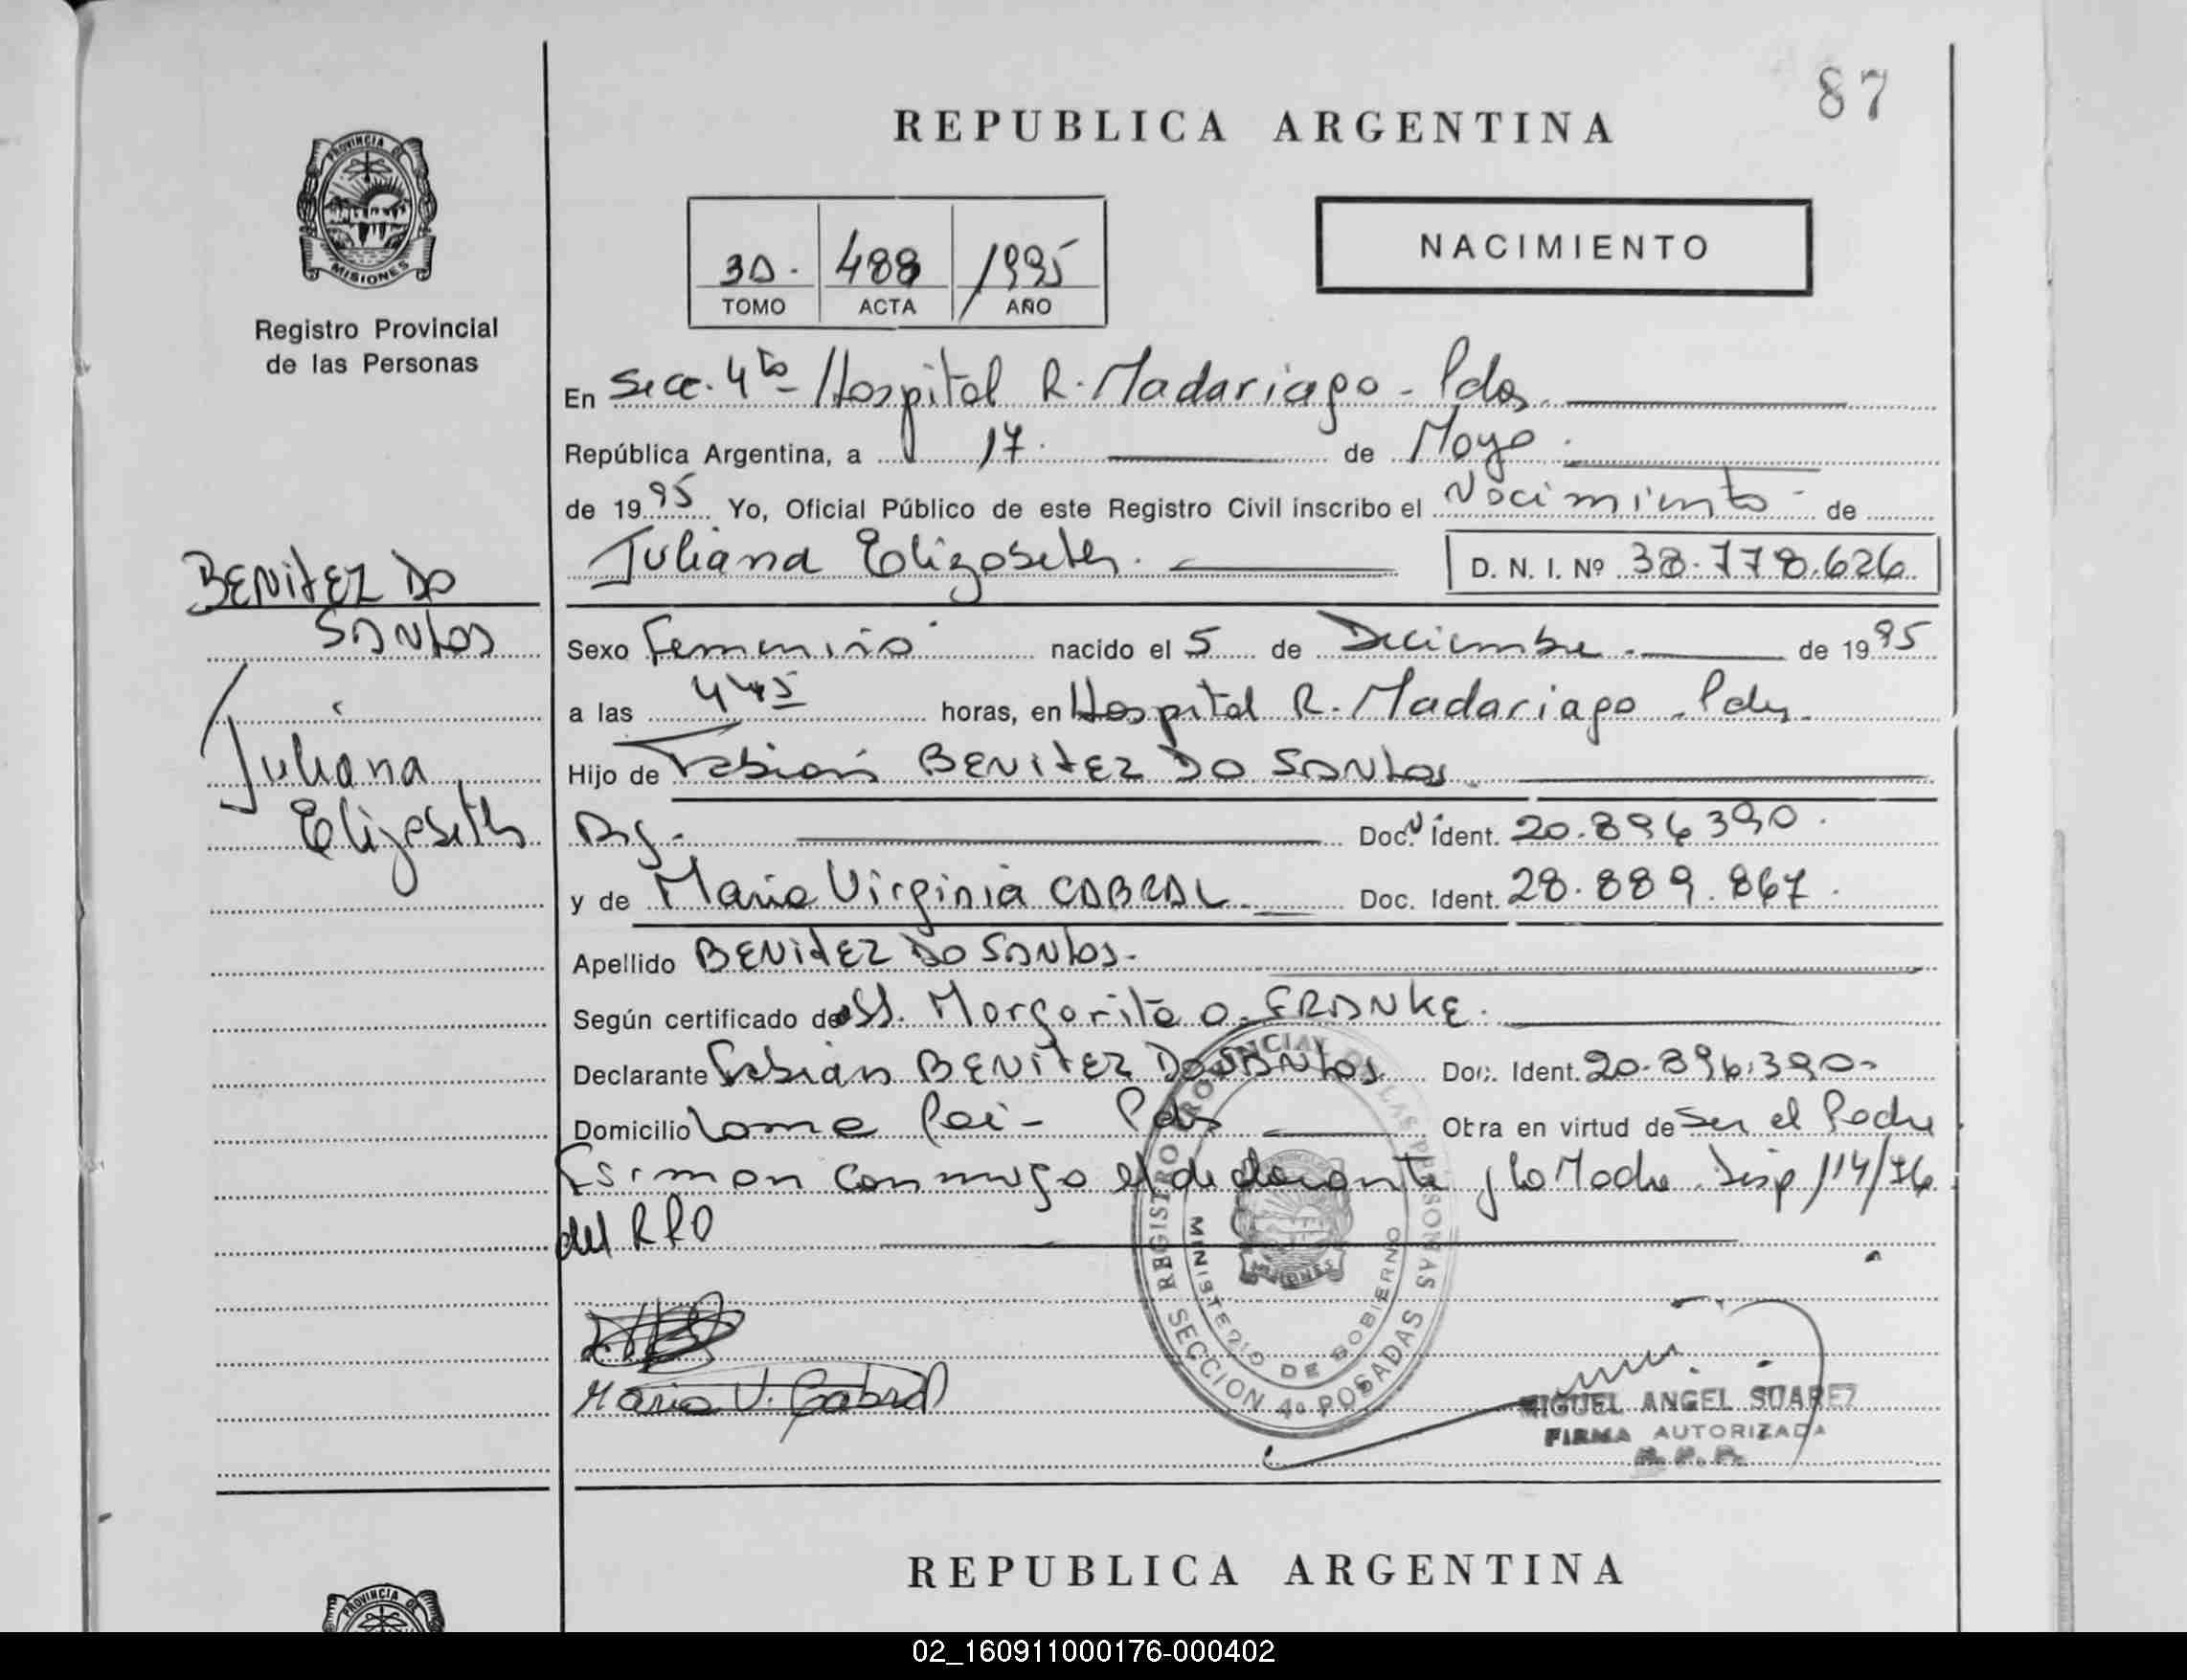 87
REPUBLICA ARGENTINA
PROVINCIA DE
MISIONES
Registro Provincial
de las Personas
30. 488 1995
TOMO ACTA AÑO
NACIMIENTO
En Secc. 4ta Hospital R. Madariaga - Pdas.
República Argentina, a 17. de Mayo.
de 1995 Yo, Oficial Público de este Registro Civil inscribo el Nacimiento de
Juliana Elizabeth. D. N. I. Nº 38.778.626
BENITEZ DO
SANTOS
Juliana
Elizabeth
Sexo Femenino nacido el 5 de Diciembre. de 1995
a las 4 45 horas, en Hospital R. Madariaga - Pdas.
Hijo de Fabian BENITEZ DO SANTOS
Doc. Ident. 20.896390.
y de Maria Virginia CABRAL. Doc. Ident. 28.889.867.
Apellido BENITEZ DO SANTOS.
Según certificado de Margarita O. FRANKE.
Declarante Fabian BENITEZ DO SANTOS Doc. Ident. 20.896.390-
Domicilio Loma Poi - Pdas Obra en virtud de Ser el Padre
Firman conmigo el declarante y la Madre. Disp 114/76
del RPO
REGISTRO PROVINCIAL DE LAS PERSONAS
MINISTERIO DE GOBIERNO
MISIONES
SECCION 4a POSADAS
Maria V. Cabral
MIGUEL ANGEL SUAREZ
FIRMA AUTORIZADA
R. P. P.
REPUBLICA ARGENTINA
PROVINCIA DE
02_160911000176-000402